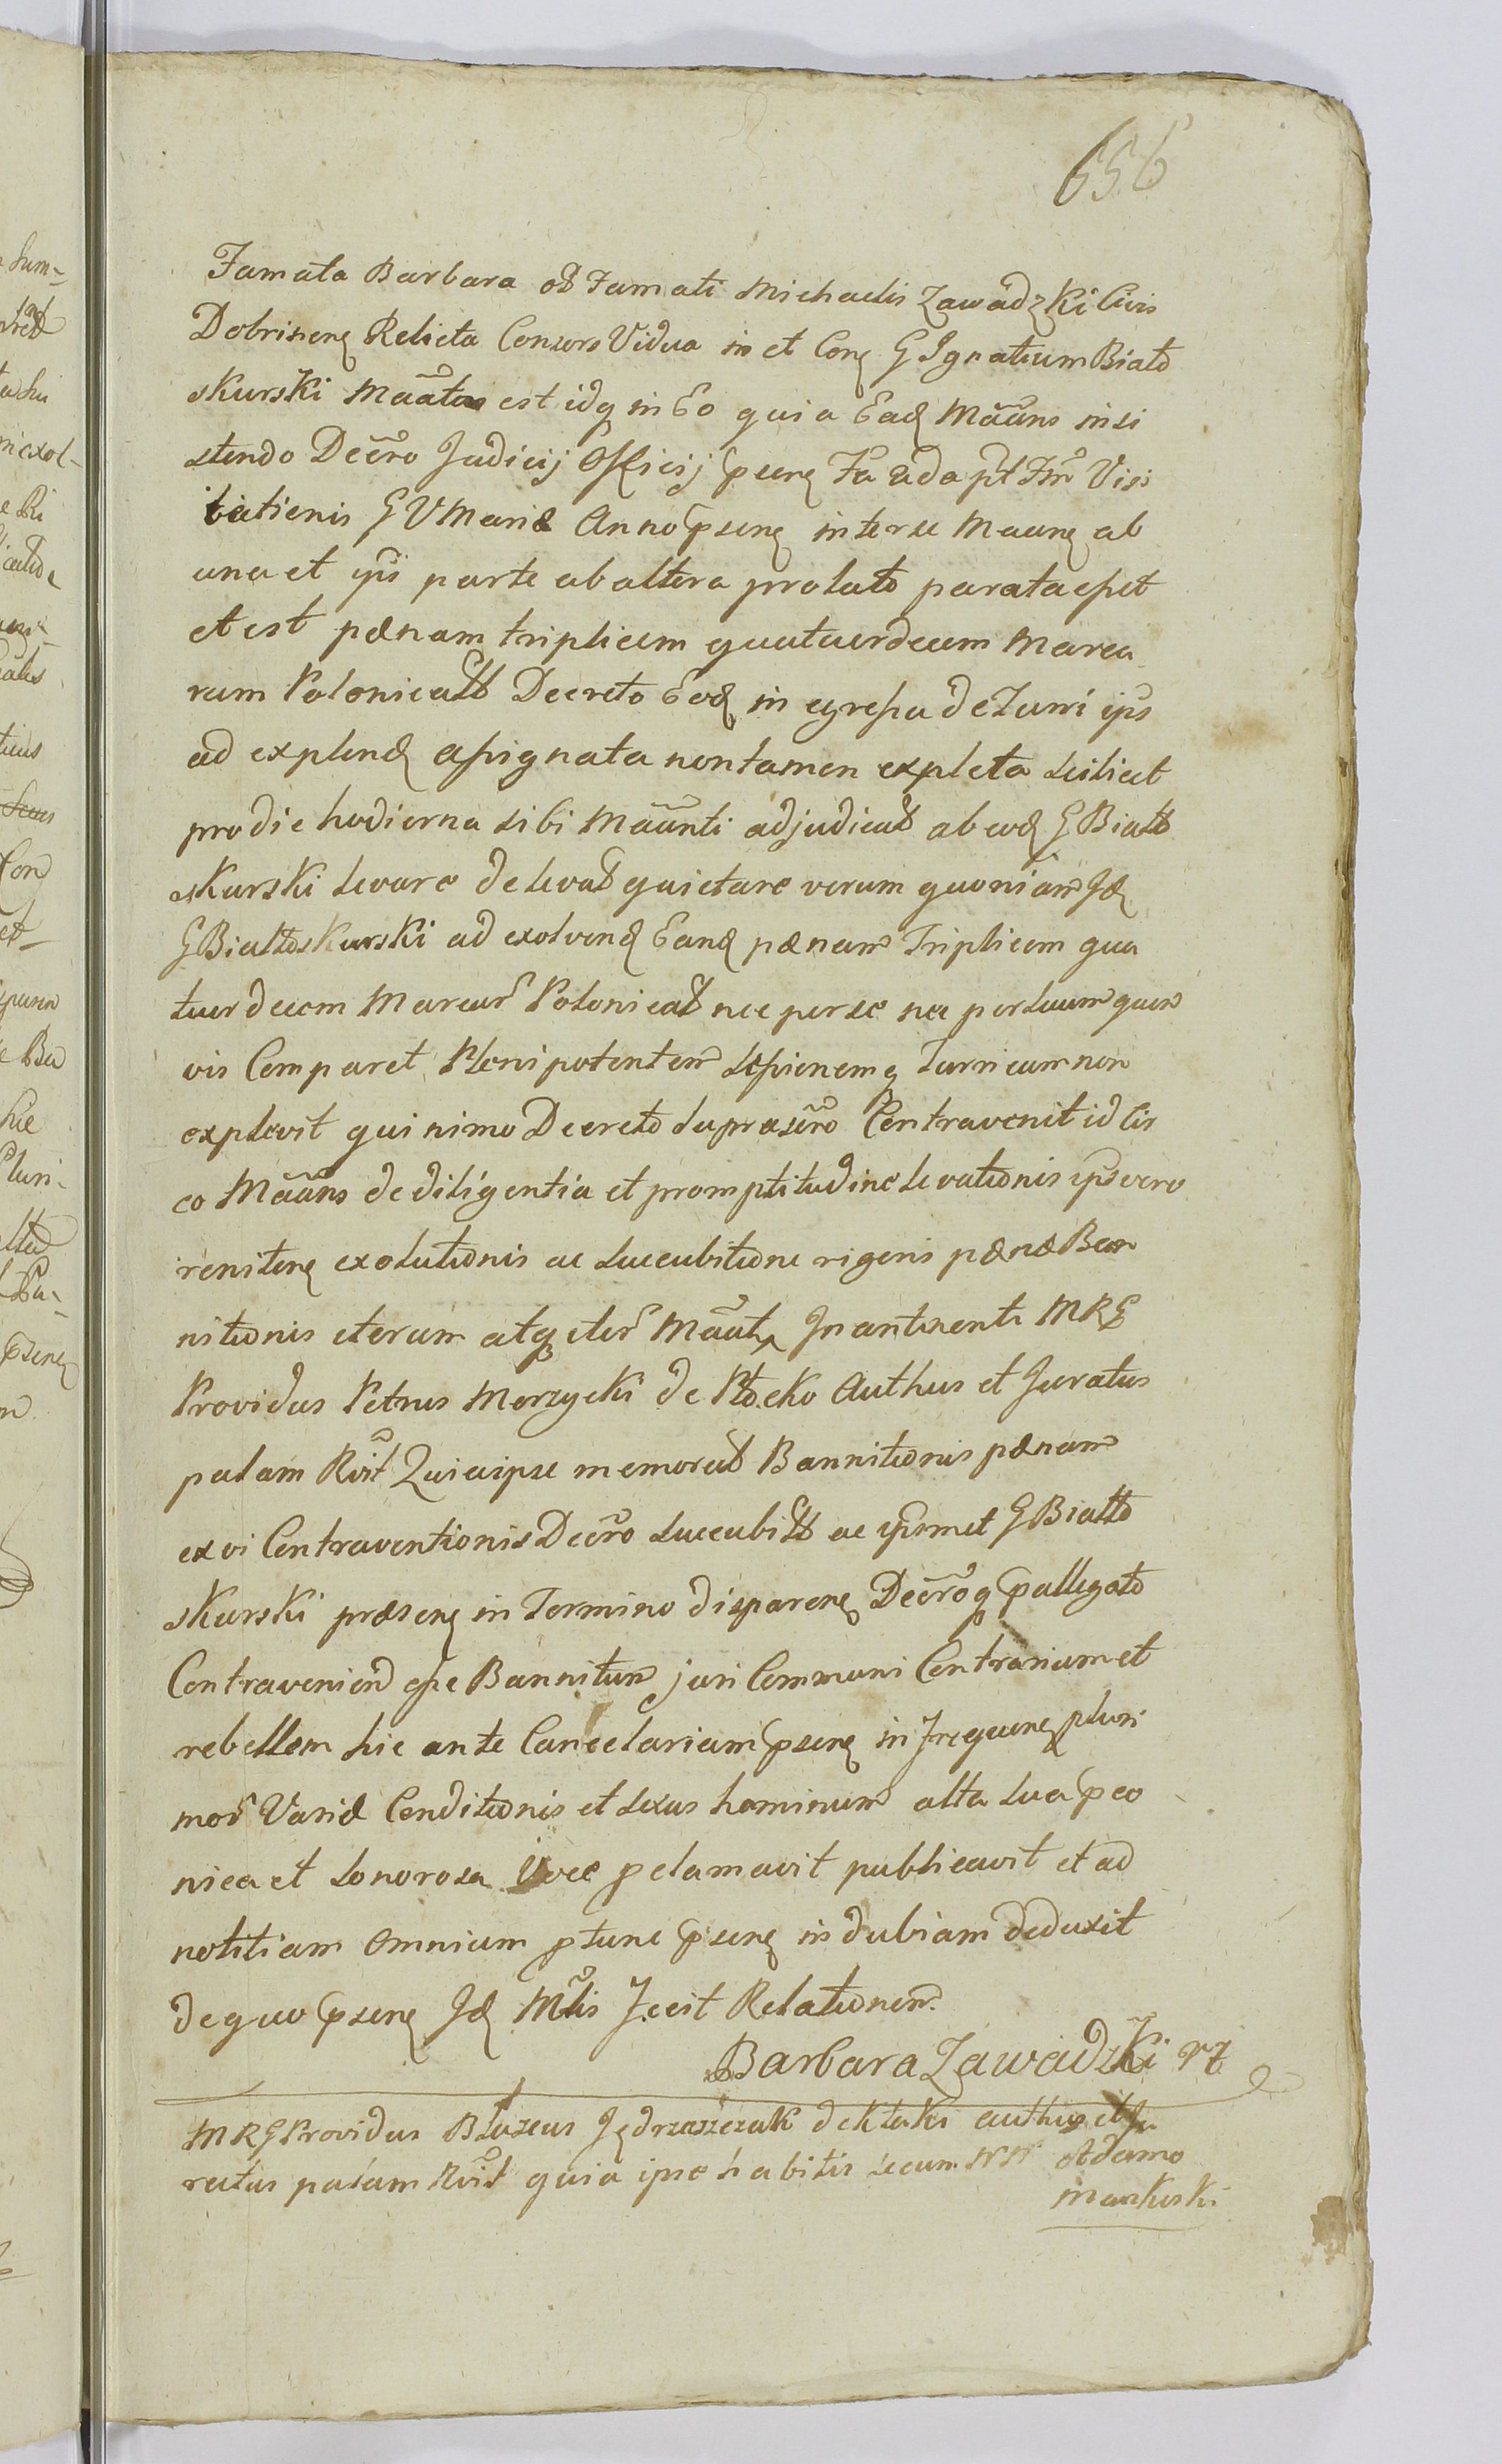 656
Famata Barbara ol Famati Michaelis Zawadzki Civis
Dobrinens Relicta Consors Vidua in et Con G Ignatium Biało
skurski Maata est idq in Eo quia Ead Maans insi
stendo Decro Judicij Officij psens Fa 2da pt Fm Visi
tationis G V Mariæ Anno psens inter se Maans ab
una et ips parte ab altera prolato parata esset
et est pænam triplicem quatuordecem Marca
rum Polonicall Decreto Eod in egressu de Turri ips
ad explend assignata non tamen expleta scilicet
pro die hodierna sibi Maanti adjudicat ab eod G Biało
skurski levare de levat quietare verum quoniam Jd
G Białłoskurski ad exolvend Eand pænam Triplicem qua
tuordecem Marcar Polonical nec per se nec per suum quem
vis Comparet Plenipotentem Sessionemq Turricam non
explevit quinimo Decreto supra scro Contravenit id cir
co Maans de diligentia et promptitudine levationis ips vero
renitens exolutionis ac succubitione rigoris pænæ Ban
nitionis iterum atq iter Maata In antisenti MRG
Providus Petrus Morzycki de Płocko Authus et Juratus
palam Rvit Quia ipse memorat Bannitionis pænam
ex vi Contraventionis Decro succubitt ac ipsmet G Białło
skurski præsens in Termino disparens Decroq pallegato
Contraveniend esse Bannitum juri Communi Contrarium et
rebellem hic ante Cancelariam psens in Frequens pluri
mor Variæ Conditionis et sexus hominum alta sua pco
nica et sonorosa Voce pclamavit publicavit et ad
notitiam Omnium ptunc psens indubiam deduxit
de quo psens Jd Mtlis Fecit Relationem
Barbara Zawadzki rz
MRG Providus Błazeus Jędrzaszczak de Ktuki authus et Ju
ratus palam Rvit quia ipse habitis secum NN Adamo
Markuski